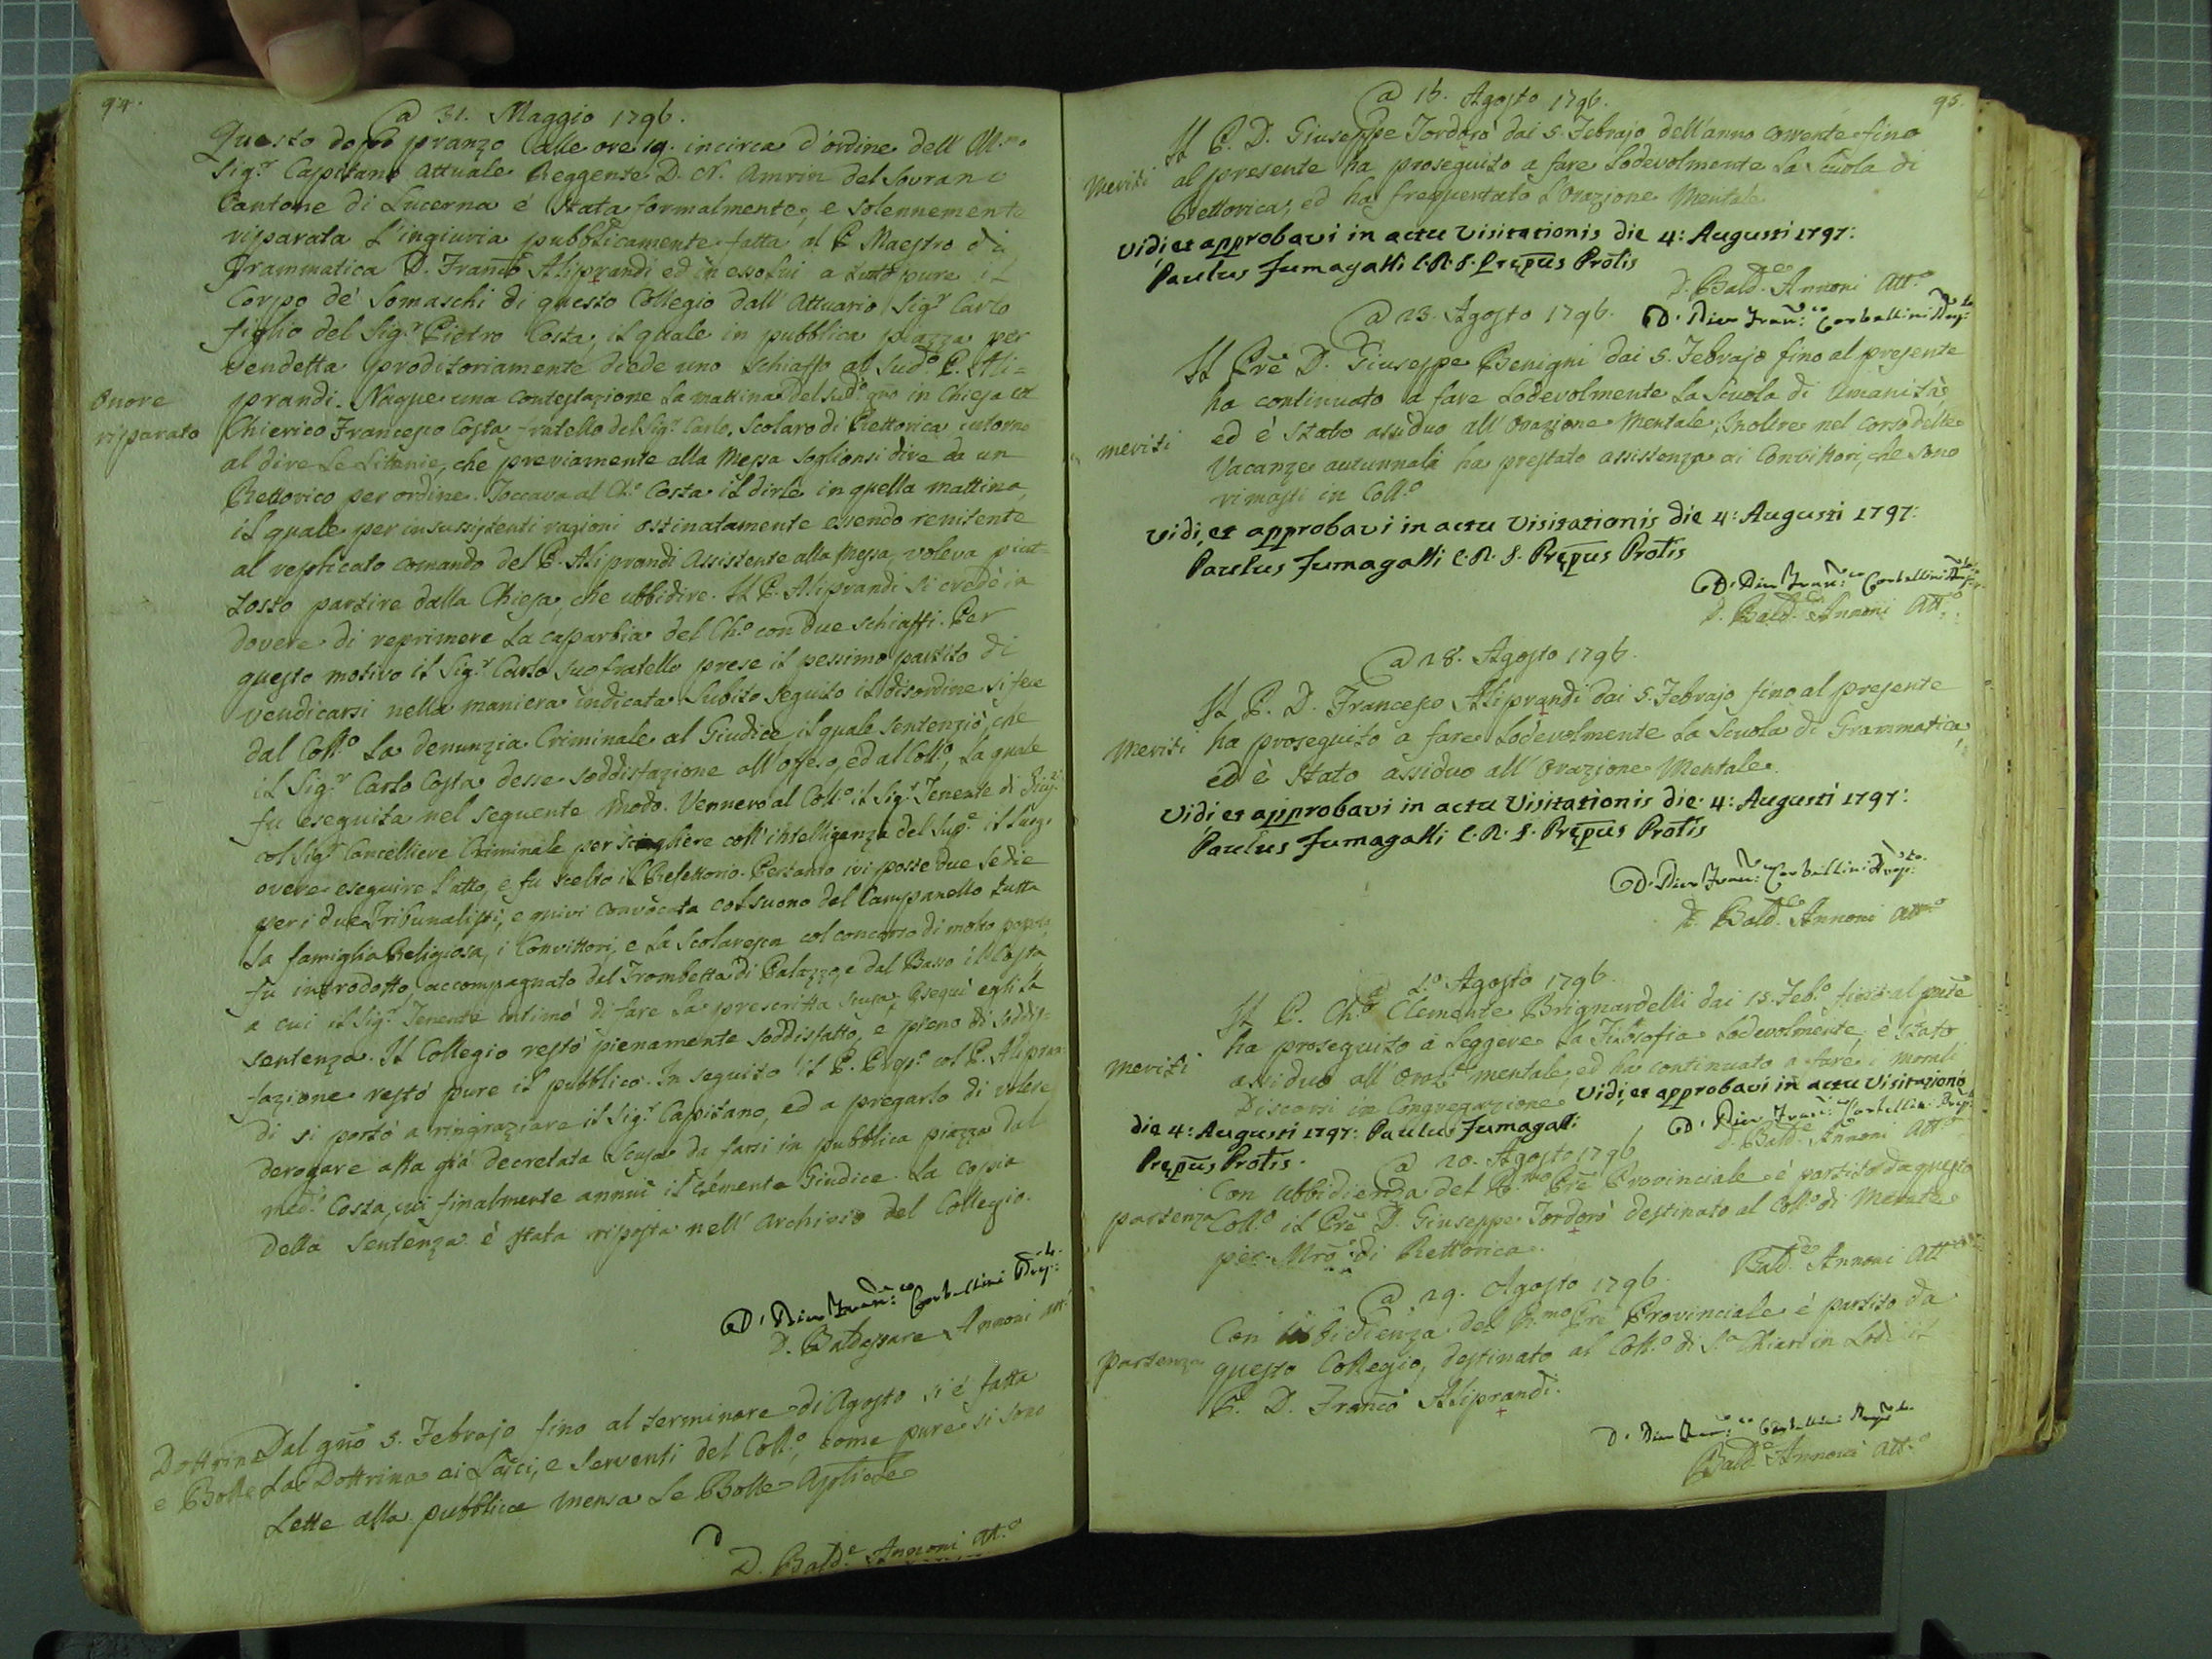 94.
a 31. Maggio 1796.
Questo dopo pranzo alle ore 19. incirca d'ordine dell' Ill.mo
Sig.r Capitano attuale Reggente D. N. Amrin del Sovrano
Cantone di Lucerna è stata formalmente, e solennemente
risparata l'ingiuria pubblicamente fatta al P. Maestro di
Grammatica D. Franco Aliprandi ed in essolui a tutto pure il
Corpo de' Somaschi di questo Collegio dall' Attuario Sig.r Carlo
figlio del Sig.r Pietro Costa, il quale in pubblica piazza per
vendetta proditoriamente diede uno schiaffo al sud.o P. Ali=
Onore
risparato
prandi. Nacque una contestazione la mattina del sud.o gno in Chiesa col
Chierico Francesco Costa fratello del Sig.r Carlo, Scolaro di Rettorica intorno
al dire le Litanie, che previamente alla Messa soglionsi dire da un
Rettorico per ordine. Toccava al Ch.o Costa il dirle in quella mattina,
il quale per insussistenti ragioni ostinatamente essendo renitente
al replicato comando del P. Aliprandi Assistente alla Messa, voleva piut=
tosto partire dalla Chiesa, che ubbidire. Il P. Aliprandi si credè in
dovere di reprimere la caparbia del Ch.o con due schiaffi. Per
questo motivo il Sig.r Carlo suo fratello prese il pessimo partito di
vendicarsi nella maniera indicata. Subito seguito il disordine si fece
dal Coll.o la denunzia Criminale al Giudice, il quale sentenziò, che
il Sig.r Carlo Costa desse soddisfazione all' offeso, ed al Coll.o, la quale
fu eseguita nel seguente modo. Vennero al Coll.o il Sig.r Tenente di
col Sig.r Cancelliere Criminale per scegliere coll' intelligenza del Sup.e il luogo
ove eseguire l'atto, e fu scelto il Refettorio. Pertanto ivi poste due sedie
per i due Tribunalisti, e quivi convocata col suono del Campanello tutta
la famiglia Religiosa, i Convittori, e la Scolaresca col concorso di molto popolo
fu introdotto accompagnato dal Trombetta di Palazzo, e dal Basso il Costa,
a cui il Sig.r Tenente intimò di fare la prescritta scusa. Eseguì egli la
sentenza. Il Collegio restò pienamente soddisfatto, e pieno di soddis=
fazione restò pure il pubblico. In seguito il P. Prep.o col P. Alipran=
di si portò a ringraziare il Sig.r Capitano, ed a pregarlo di volere
derogare alla già decretata scusa da farsi in pubblica piazza dal
med.o Costa, cui finalmente annuì il clemente Giudice. La copia
della sentenza è stata riposta nell' Archivio del Collegio.
D. Franc.co Corballini Prep.to
D. Baldassare Annoni Att.o
Dottrina
e Bolle
Dal gno 5. Febrajo fino al terminare di Agosto si è fatta
la Dottrina ai Laici, e Serventi del Coll.o, come pure si sono
lette alla pubblica mensa le Bolle Apliche
D. Bald.e Annoni Att.o
95.
a 16. Agosto 1796.
Meriti
Il P. D. Giuseppe Tordorò dai 5. Febrajo dell'anno corrente fino
al presente ha proseguito a fare lodevolmente la Scuola di
Rettorica, ed ha frequentato l'Orazione Mentale
Vidi et approbavi in actu Visitationis die 4: Augusti 1797:
Paulus Fumagalli C.R.S. Prępus Prolis
D. Bald.e Annoni Att.o
D. Franc.co Corballini Prep.to
a 23. Agosto 1796.
meriti
Il Pre D. Giuseppe Benigni dai 5. Febrajo fino al presente
ha continuato a fare lodevolmente la Scuola di Umanità,
ed è stato assiduo all' Orazione Mentale; Inoltre nel corso delle
Vacanze autunnali ha prestato assistenza ai Convittori, che sono
rimasti in Coll.o
Vidi, et approbavi in actu Visitationis die 4: Augusti 1797:
Paulus Fumagalli C.R.S. Prępus Prolis
D. Franc.co Corballini Prep.to
D. Bald.e Annoni Att.o
a 28. Agosto 1796.
Meriti
Il P. D. Francesco Aliprandi dai 5. Febrajo fino al presente
ha proseguito a fare lodevolmente la Scuola di Grammatica,
ed è stato assiduo all' Orazione Mentale.
Vidi et approbavi in actu Visitationis die 4: Augusti 1797:
Paulus Fumagalli C.R.S. Prępus Prolis
D. Franc.co Corballini Prep.to
D. Bald.e Annoni Att.o
a Agosto 1796.
meriti
Il P. Ch.o Clemente Brignardelli dai 15. Feb.o fino al pnte
ha proseguito a leggere la Filosofia lodevolmente, è stato
assiduo all' oraz.e mentale, ed ha continuato a fare i morali
Discorsi in Congregazione. Vidi, et approbavi in actu Visitationis
die 4: Augusti 1797: Paulus Fumagalli
Prępus Prolis.
D. Franc.co Corballini Prep.to
D. Bald.e Annoni Att.o
a 20. Agosto 1796
partenza
Con ubbidienza del R.mo Pre Provinciale è partito da questo
Coll.o il Pre D. Giuseppe Tordorò destinato al Coll.o di Merate
per Mro di Rettorica.
Bald.e Annoni Att.o
a 29. Agosto 1796.
partenza
Con ubbidienza del R.mo Pre Provinciale è partito da
questo Collegio, destinato al Coll.o di S.a Chiara in Lodi il
P. D. Franco Aliprandi.
D. Franc.co Corballini Prep.to
Bald.e Annoni Att.o